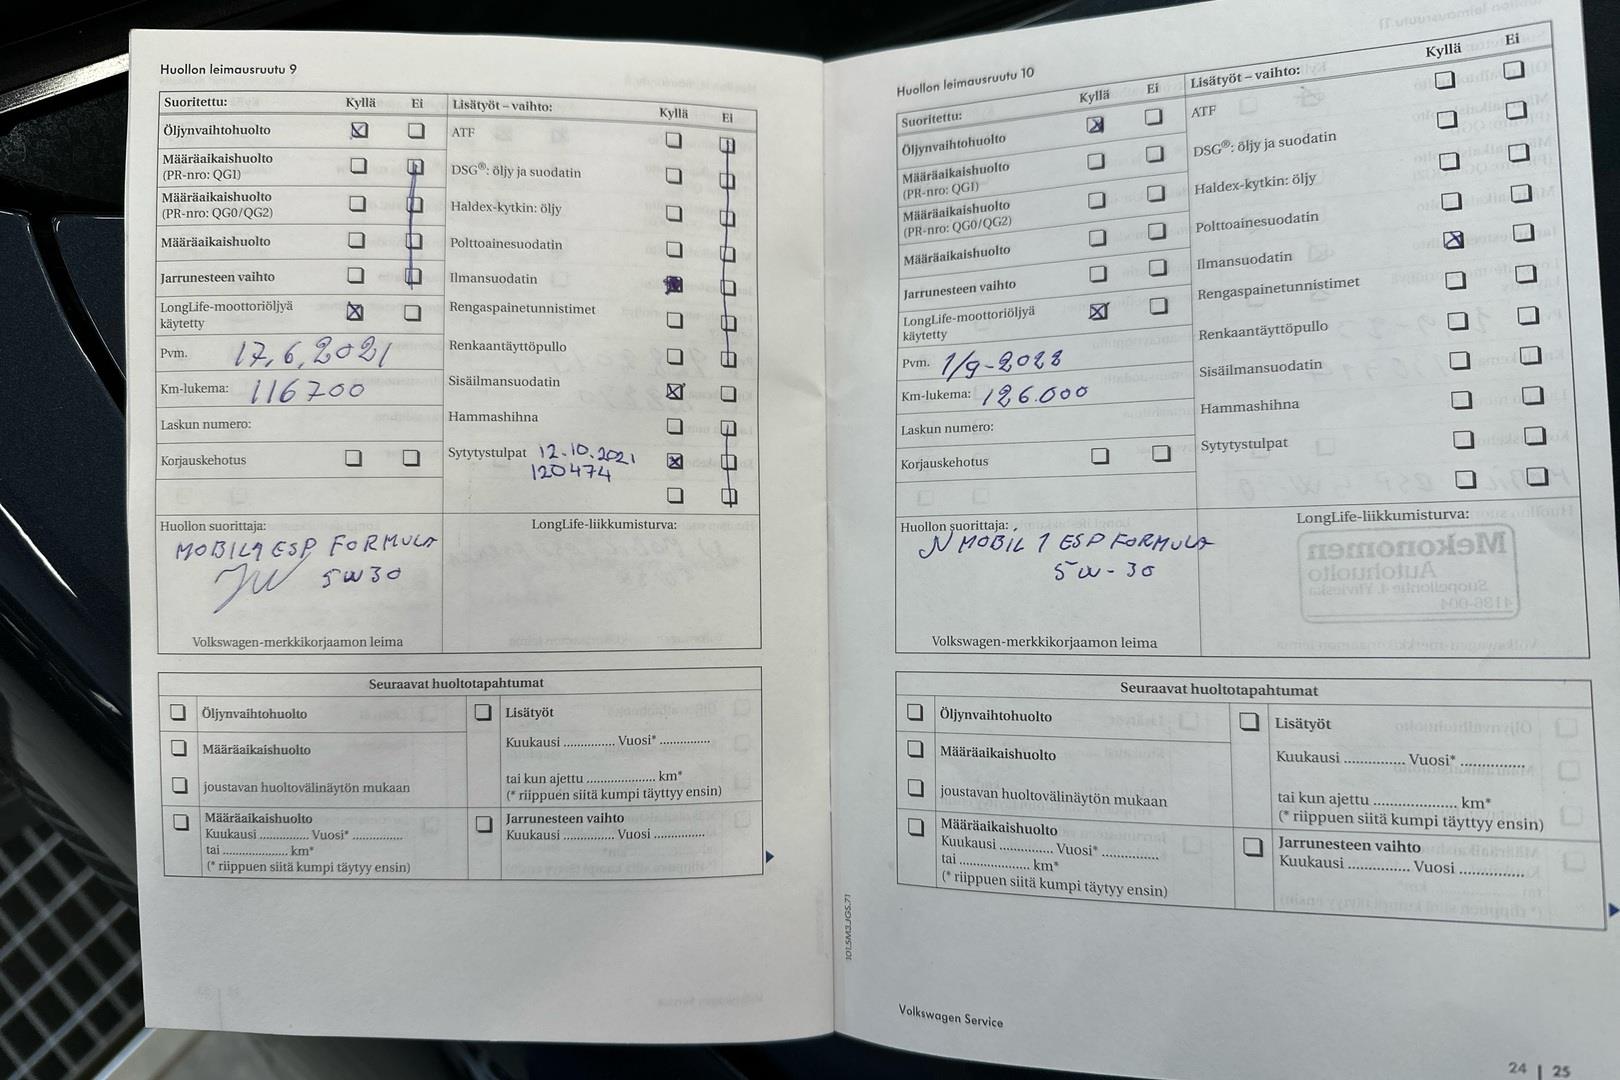 Huollon leimausruutu 9
Suoritettu: Kyllä Ei
Öljynvaihtohuolto
Määräaikaishuolto
(PR-nro: QG1)
Määräaikaishuolto
(PR-nro: QG0/QG2)
Määräaikaishuolto
Jarrunesteen vaihto
LongLife-moottoriöljyä
käytetty
Pvm. 17.6.2021
Km-lukema: 116700
Laskun numero:
Korjauskehotus
Lisätyöt – vaihto: Kyllä Ei
ATF
DSG®: öljy ja suodatin
Haldex-kytkin: öljy
Polttoainesuodatin
Ilmansuodatin
Rengaspainetunnistimet
Renkaantäyttöpullo
Sisäilmansuodatin
Hammashihna
Sytytystulpat 12.10.2021
120474
Huollon suorittaja:
MOBIL 1 ESP FORMULA
5W30
Volkswagen-merkkikorjaamon leima
LongLife-liikkumisturva:
Seuraavat huoltotapahtumat
Öljynvaihtohuolto
Määräaikaishuolto
joustavan huoltovälinäytön mukaan
Määräaikaishuolto
Kuukausi .............. Vuosi* ..............
tai .................... km*
(* riippuen siitä kumpi täytyy ensin)
Lisätyöt
Kuukausi .............. Vuosi* ..............
tai kun ajettu .................... km*
(* riippuen siitä kumpi täyttyy ensin)
Jarrunesteen vaihto
Kuukausi .............. Vuosi ..............
Huollon leimausruutu 10
Suoritettu: Kyllä Ei
Öljynvaihtohuolto
Määräaikaishuolto
(PR-nro: QG1)
Määräaikaishuolto
(PR-nro: QG0/QG2)
Määräaikaishuolto
Jarrunesteen vaihto
LongLife-moottoriöljyä
käytetty
Pvm. 1/9-2022
Km-lukema: 126.000
Laskun numero:
Korjauskehotus
Lisätyöt – vaihto: Kyllä Ei
ATF
DSG®: öljy ja suodatin
Haldex-kytkin: öljy
Polttoainesuodatin
Ilmansuodatin
Rengaspainetunnistimet
Renkaantäyttöpullo
Sisäilmansuodatin
Hammashihna
Sytytystulpat
Huollon suorittaja:
MOBIL 1 ESP FORMULA
5W-30
Volkswagen-merkkikorjaamon leima
LongLife-liikkumisturva:
Mekonomen
Autohuolto
4136-004
Seuraavat huoltotapahtumat
Öljynvaihtohuolto
Määräaikaishuolto
joustavan huoltovälinäytön mukaan
Määräaikaishuolto
Kuukausi .............. Vuosi* ..............
tai .................... km*
(* riippuen siitä kumpi täytyy ensin)
Lisätyöt
Kuukausi .............. Vuosi* ..............
tai kun ajettu .................... km*
(* riippuen siitä kumpi täyttyy ensin)
Jarrunesteen vaihto
Kuukausi .............. Vuosi ..............
101.5M3.JGS.71
Volkswagen Service
24 | 25